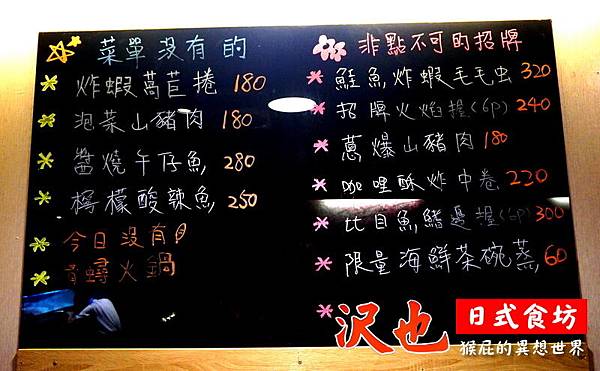 菜單沒有的
炸蝦萵苣捲 180
泡菜山豬肉 180
醬燒午仔魚 280
檸檬酸辣魚 250
今日沒有
蟳火鍋
非點不可的招牌
鮭魚炸蝦毛毛虫 320
招牌火焰握(6p) 240
蔥爆山豬肉 180
咖哩酥炸中卷 220
比目魚鰭邊握(6p) 300
限量海鮮茶碗蒸 60
沢也 日式食坊
猴屁的異想世界